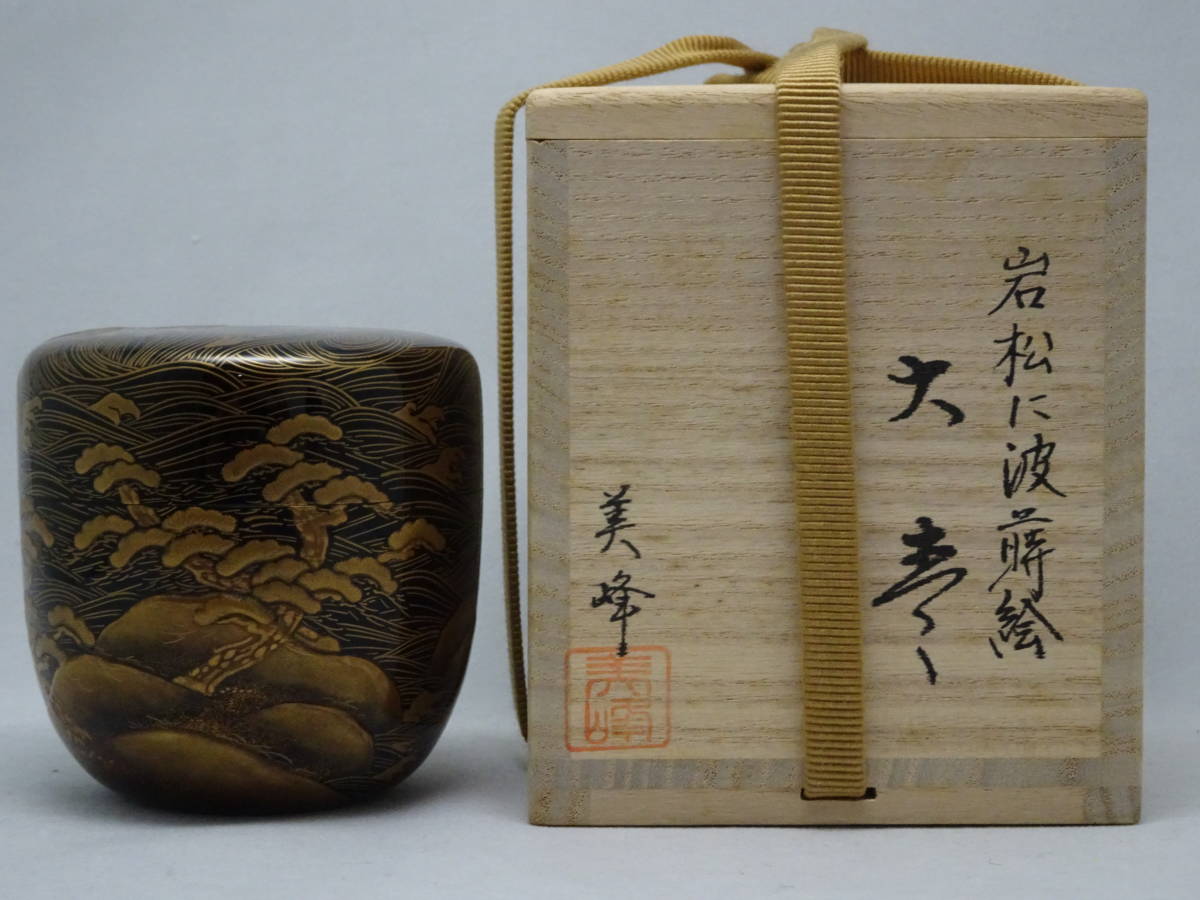 岩松に波蒔絵
大棗
美峰
美峰